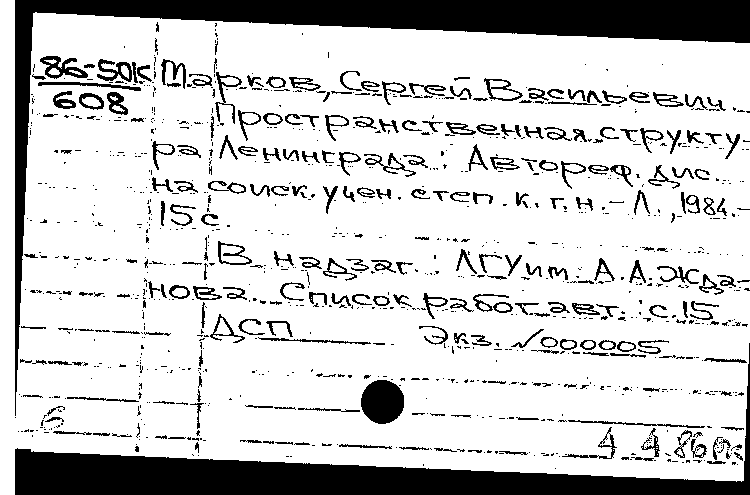 86-50К
608
Марков, Сергей Васильевич
Пространственная структу-
ра Ленинграда: Автореф. дис.
на соиск. учен. степ. к. г. н. - Л., 1984. -
15 с.
В надзаг.: ЛГУ им. А. А. Жда-
нова. Список работ авт.: с. 15
ДСП Экз. №000005
6
4 4 86